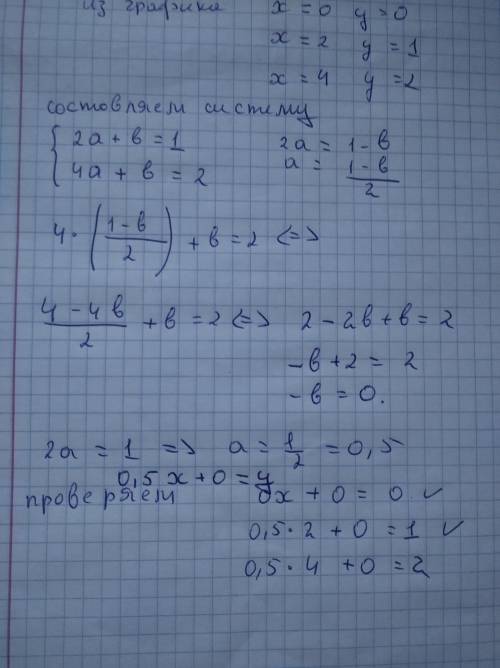 из графика x = 0 y = 0
x = 2 y = 1
x = 4 y = 2
состовляем систему
{ 2a + в = 1 2a = 1 - в
4a + в = 2 a = (1 - в)/2
4 · ((1 - в)/2) + в = 2 <=>
(4 - 4в)/2 + в = 2 <=> 2 - 2в + в = 2
-в + 2 = 2
-в = 0.
2a = 1 => a = 1/2 = 0,5
0,5x + 0 = y
проверяем 0x + 0 = 0 ✓
0,5 · 2 + 0 = 1 ✓
0,5 · 4 + 0 = 2